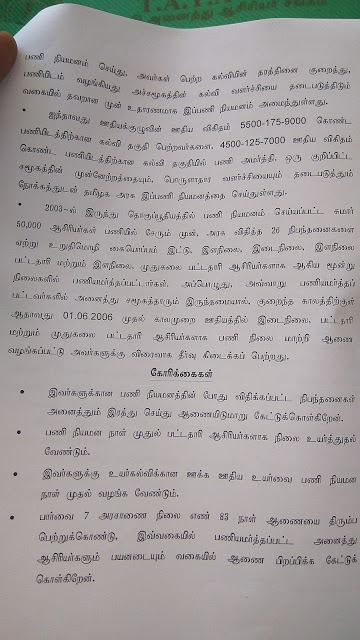 T.A.T.
அனைத்து ஆசிரியர் சங்கம்
பணி நியமனம் செய்து, அவர்கள் பெற்ற கல்வியின் தரத்தினை குறைத்து,
பணியிடம் வழங்கியது அச்சமூகத்தின் கல்வி வளர்ச்சியை தடைபடுத்திடும்
வகையில் தவறான முன் உதாரணமாக இப்பணி நியமனம் அமைந்துள்ளது.
• ஐந்தாவது ஊதியக்குழுவின் ஊதிய விகிதம் 5500-175-9000 கொண்ட
பணியிடத்திற்கான கல்வி தகுதி பெற்றவர்களை, 4500-125-7000 ஊதிய விகிதம்
கொண்ட பணியிடத்திற்கான கல்வி தகுதியில் பணி அமர்த்தி, ஒரு குறிப்பிட்ட
சமூகத்தின் முன்னேற்றத்தையும், பொருளாதார வளர்ச்சியையும் தடைபடுத்தும்
நோக்கத்துடன் தமிழக அரசு இப்பணி நியமனத்தை செய்துள்ளது.
• 2003-ல் இருந்து தொகுப்பூதியத்தில் பணி நியமனம் செய்யபட்ட சுமார்
50,000 ஆசிரியர்கள் பணியில் சேரும் முன், அரசு விதித்த 26 நிபந்தனைகளை
ஏற்று உறுதிமொழி கையொப்பம் இட்டு, இளநிலை, இடைநிலை, இளநிலை
பட்டதாரி மற்றும் இளநிலை, முதுகலை பட்டதாரி ஆசிரியர்களாக ஆகிய மூன்று
நிலைகளில் பணியமர்த்தப்பட்டார்கள். அப்பொழுது, அவ்வாறு பணியமர்த்தப்
பட்டவர்களில் அனைத்து சமூகத்தாரும் இருந்தமையால், குறைந்த காலத்திற்குள்
ஆதாவது 01.06.2006 முதல் காலமுறை ஊதியத்தில் இடைநிலை, பட்டதாரி
மற்றும் முதுகலை பட்டதாரி ஆசிரியர்களாக பணி நிலை மாற்றி ஆணை
வழங்கப்பட்டு அவர்களுக்கு விரைவாக தீர்வு கிடைக்கப் பெற்றது.
கோரிக்கைகள்
• இவர்களுக்கான பணி நியமனத்தின் போது விதிக்கப்பட்ட நிபந்தனைகள்
அனைத்தும் இரத்து செய்து ஆணையிடுமாறு கேட்டுக்கொள்கிறேன்.
• பணி நியமன நாள் முதுல் பட்டதாரி ஆசிரியர்களாக நிலை உயர்த்துதல்
வேண்டும்.
• இவர்களுக்கு உயர்கல்விக்கான ஊக்க ஊதிய உயர்வை பணி நியமன
நாள் முதல் வழங்க வேண்டும்.
• பார்வை 7 அரசாணை நிலை எண் 83 நாள் ஆணையை திரும்ப
பெற்றுக்கொண்டு, இவ்வகையில் பணியமர்த்தப்பட்ட அனைத்து
ஆசிரியர்களும் பயனடையும் வகையில் ஆணை பிறப்பிக்க கேட்டுக்
கொள்கிறேன்.